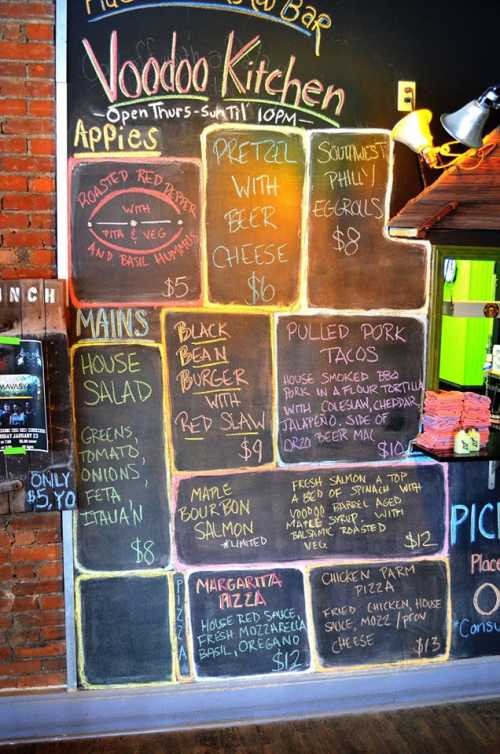 Bar
Voodoo Kitchen
-Open Thurs-Sun 'Til 10PM-
Appies
ROASTED RED PEPPER
WITH
PITA & VEG
AND BASIL HUMMUS
$5
PRETZEL
WITH
BEER
CHEESE
$6
SOUTHWEST
PHILLY
EGGROLLS
$8
MAINS
HOUSE
SALAD
GREENS,
TOMATO,
ONIONS,
FETA
ITALIA'N
$8
BLACK
BEAN
BURGER
WITH
RED SLAW
$9
PULLED PORK
TACOS
HOUSE SMOKED BBQ
PORK IN A FLOUR TORTILLA
WITH COLESLAW, CHEDDAR,
JALAPEÑO. SIDE OF
ORZO BEER MAC
$10
MAPLE
BOURBON
SALMON
*LIMITED
FRESH SALMON A TOP
A BED OF SPINACH WITH
VOODOO BARREL AGED
MAPLE SYRUP. WITH
BALSAMIC ROASTED
VEG
$12
PIZZA
MARGARITA
PIZZA
HOUSE RED SAUCE,
FRESH MOZZARELLA
BASIL, OREGANO
$12
CHICKEN PARM
PIZZA
FRIED CHICKEN, HOUSE
SAUCE, MOZZ / PROV
CHEESE
$13
UNCH
ONLY
$5,YO
PIC
Place
O
*Consu